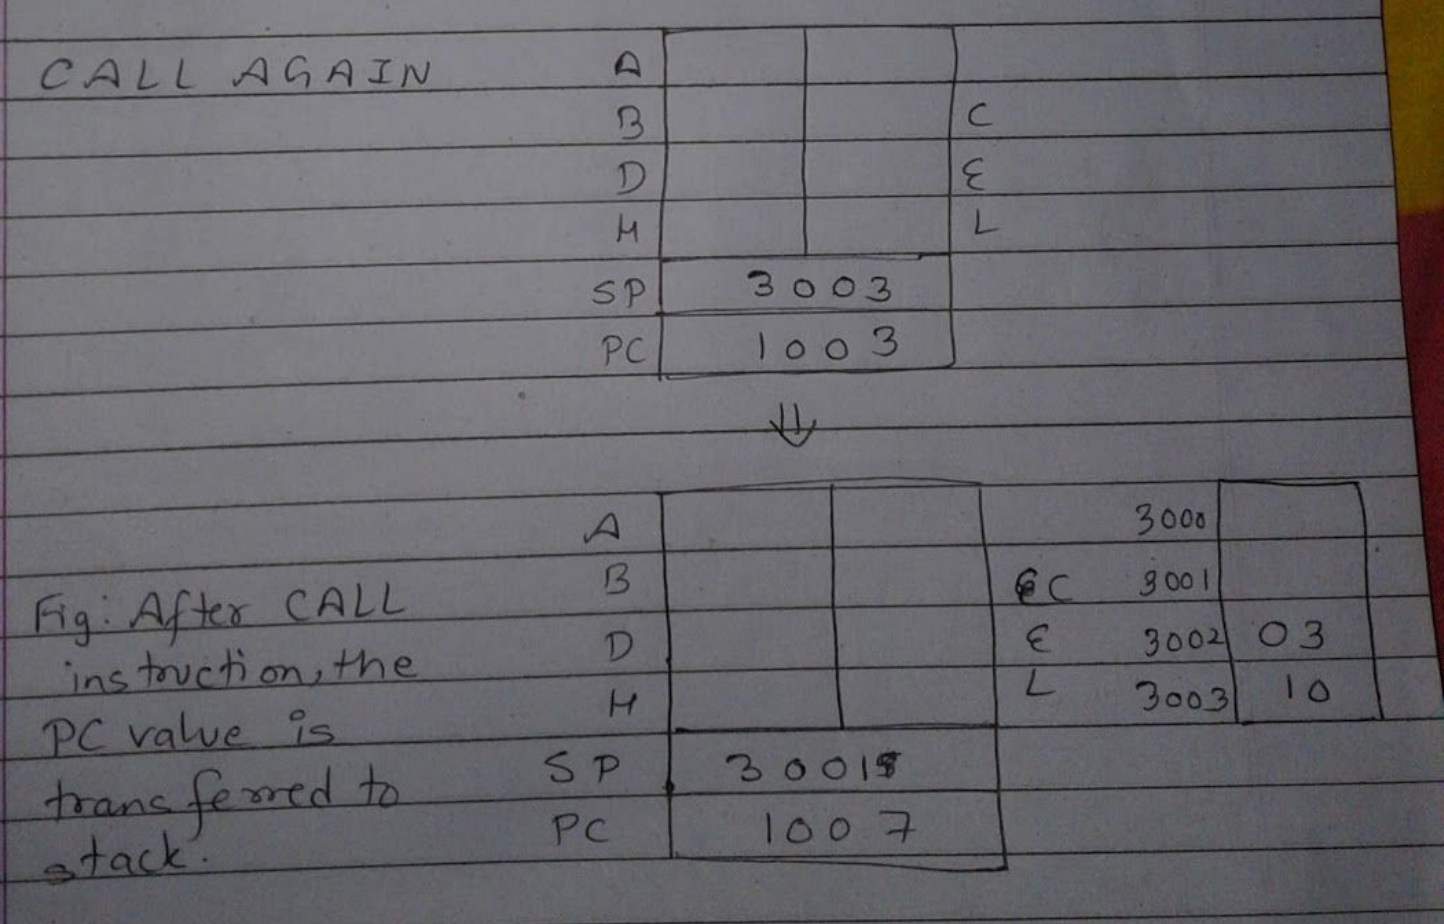 CALL AGAIN
A
B C
D E
H L
SP 3003
PC 1003
⇓
A 3000
B C 3001
D E 3002 03
H L 3003 10
SP 3001
PC 1007
Fig: After CALL
instruction, the
PC value is
transferred to
stack.